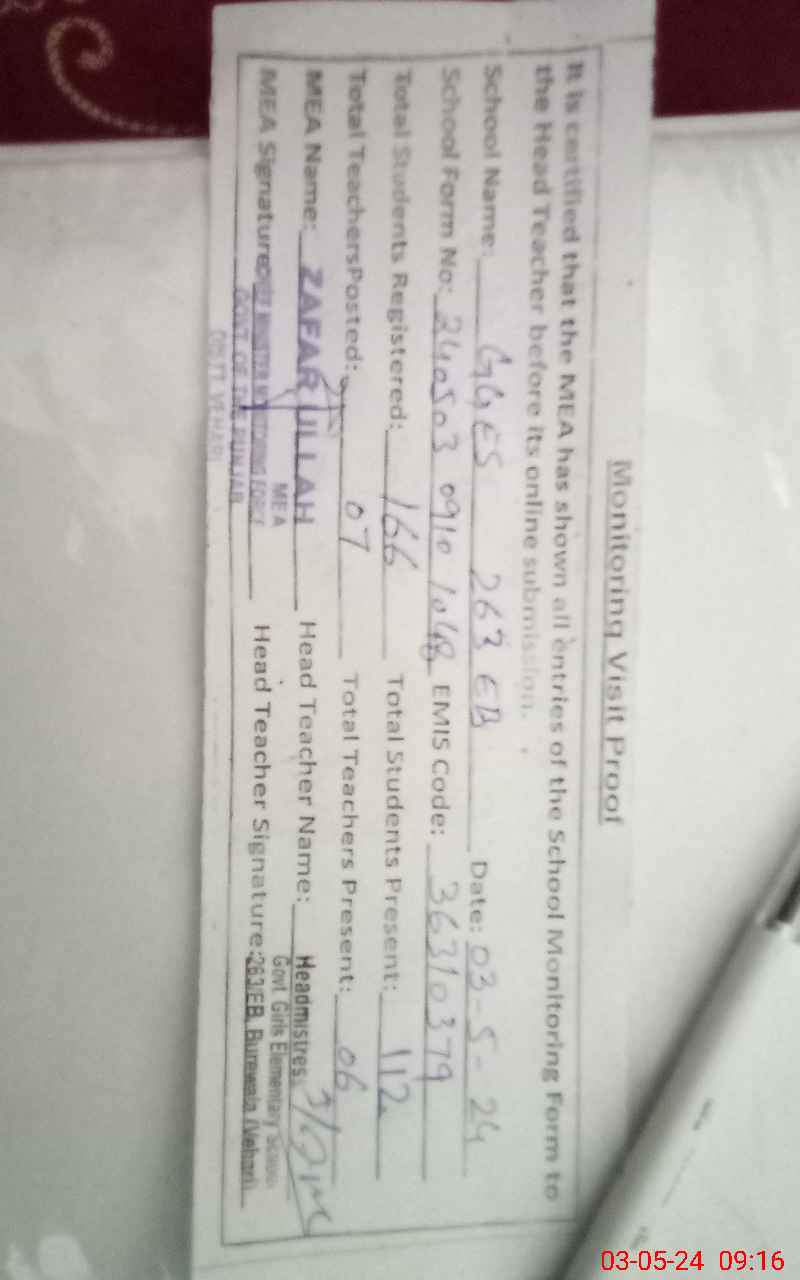 Monitoring Visit Proof
It is certified that the MEA has shown all entries of the School Monitoring Form to
the Head Teacher before its online submission.
School Name: GGES 263 EB Date: 03-5-24
School Form No: 240503 0910 1048 EMIS Code: 36310379
Total Students Registered: 166 Total Students Present: 112
Total TeachersPosted: 07 Total Teachers Present: 06
MEA Name: ZAFAR ULLAH Head Teacher Name: Headmistress
MEA Govt. Girls Elementary School
MEA Signature: CHIEF MINISTER MONITORING FORCE Head Teacher Signature: 263/EB, Burewala (Vehari)
GOVT OF THE PUNJAB
DISTT. VEHARI
03-05-24 09:16